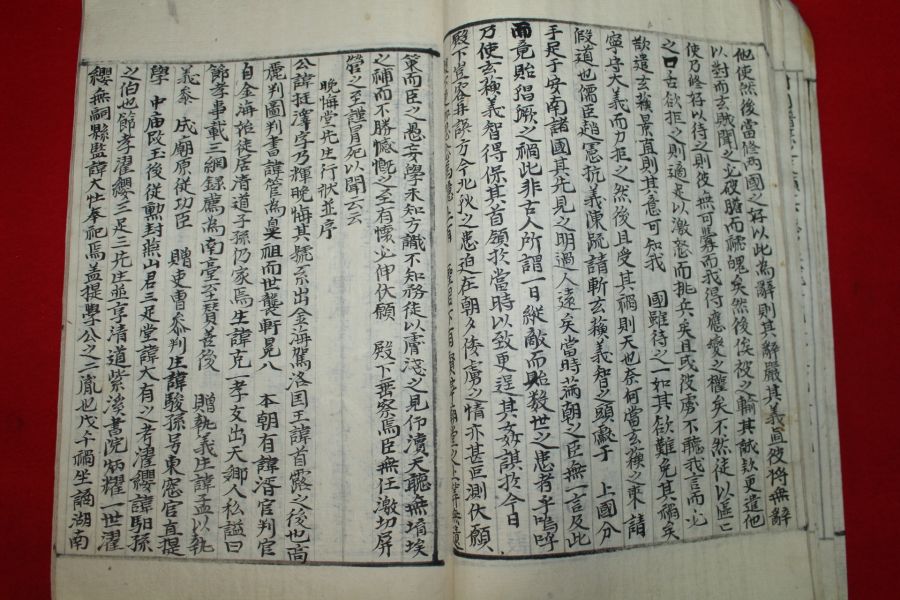 他使然後當修兩國之好以此為辭則其辭嚴其義直彼將無辭
以對而玄賊聞之必破膽而褫魄矣然後俟彼之輸其誠款更遣他
使乃修好以待之則彼無可釁而我得應變之權矣不然徒以區區
之口舌欲拒之則適足以激怒而挑兵矣且或彼虜不聽我言而必
欲遣玄蘓景直則其意可知我 國雖待之一如其欲難免其禍矣
寧守大義而力拒之然後且受其禍則天也奈何當玄蘓之來請
假道也儒臣趙憲抗義陳疏請斬玄蘓義智之頭獻于 上國分
手足于安南諸國其先見之明過人遠矣當時滿朝之臣無一言及此
而竟貽猖厥之禍此非古人所謂一日縱敵而貽數世之患者乎嗚呼
乃使玄蘓義智得保其首領於當時以致更逞其奸謀於今日
殿下豈容再誤方今北狄之患迫在朝夕倭虜之情亦甚叵測伏願
策而臣之愚妄學未知方識不知務徒以膚淺之見仰瀆天聽無埃
之補而不勝憾慨之至有懷必伸伏願 殿下垂察焉臣無任激切屏
營之至謹冒死以聞云云
晩悔堂先生行狀並序
公諱挺澤字乃輝晩悔其號系出金海駕洛国王諱首露之後也高
麗判圖判書諱管為皇祖而世襲軒冕八 本朝有諱湑官判官
自金海始徙居清道子孫仍家焉生諱克一孝友出天鄉人私謚曰
節孝事載三綱錄薦為南臺至賢善後 贈執義生諱孟以執
義叅 成廟原從功臣 贈吏曹叅判生諱駿孫号東窓官直提
學 中庙改玉後從勳封燕山君三足堂諱大有之考濯纓諱馹孫
之伯也節孝濯纓三足三先生並享清道紫溪書院炳耀一世濯
纓無嗣縣監諱大壯奉祀焉盖提學公之二胤也戊午禍坐謫湖南